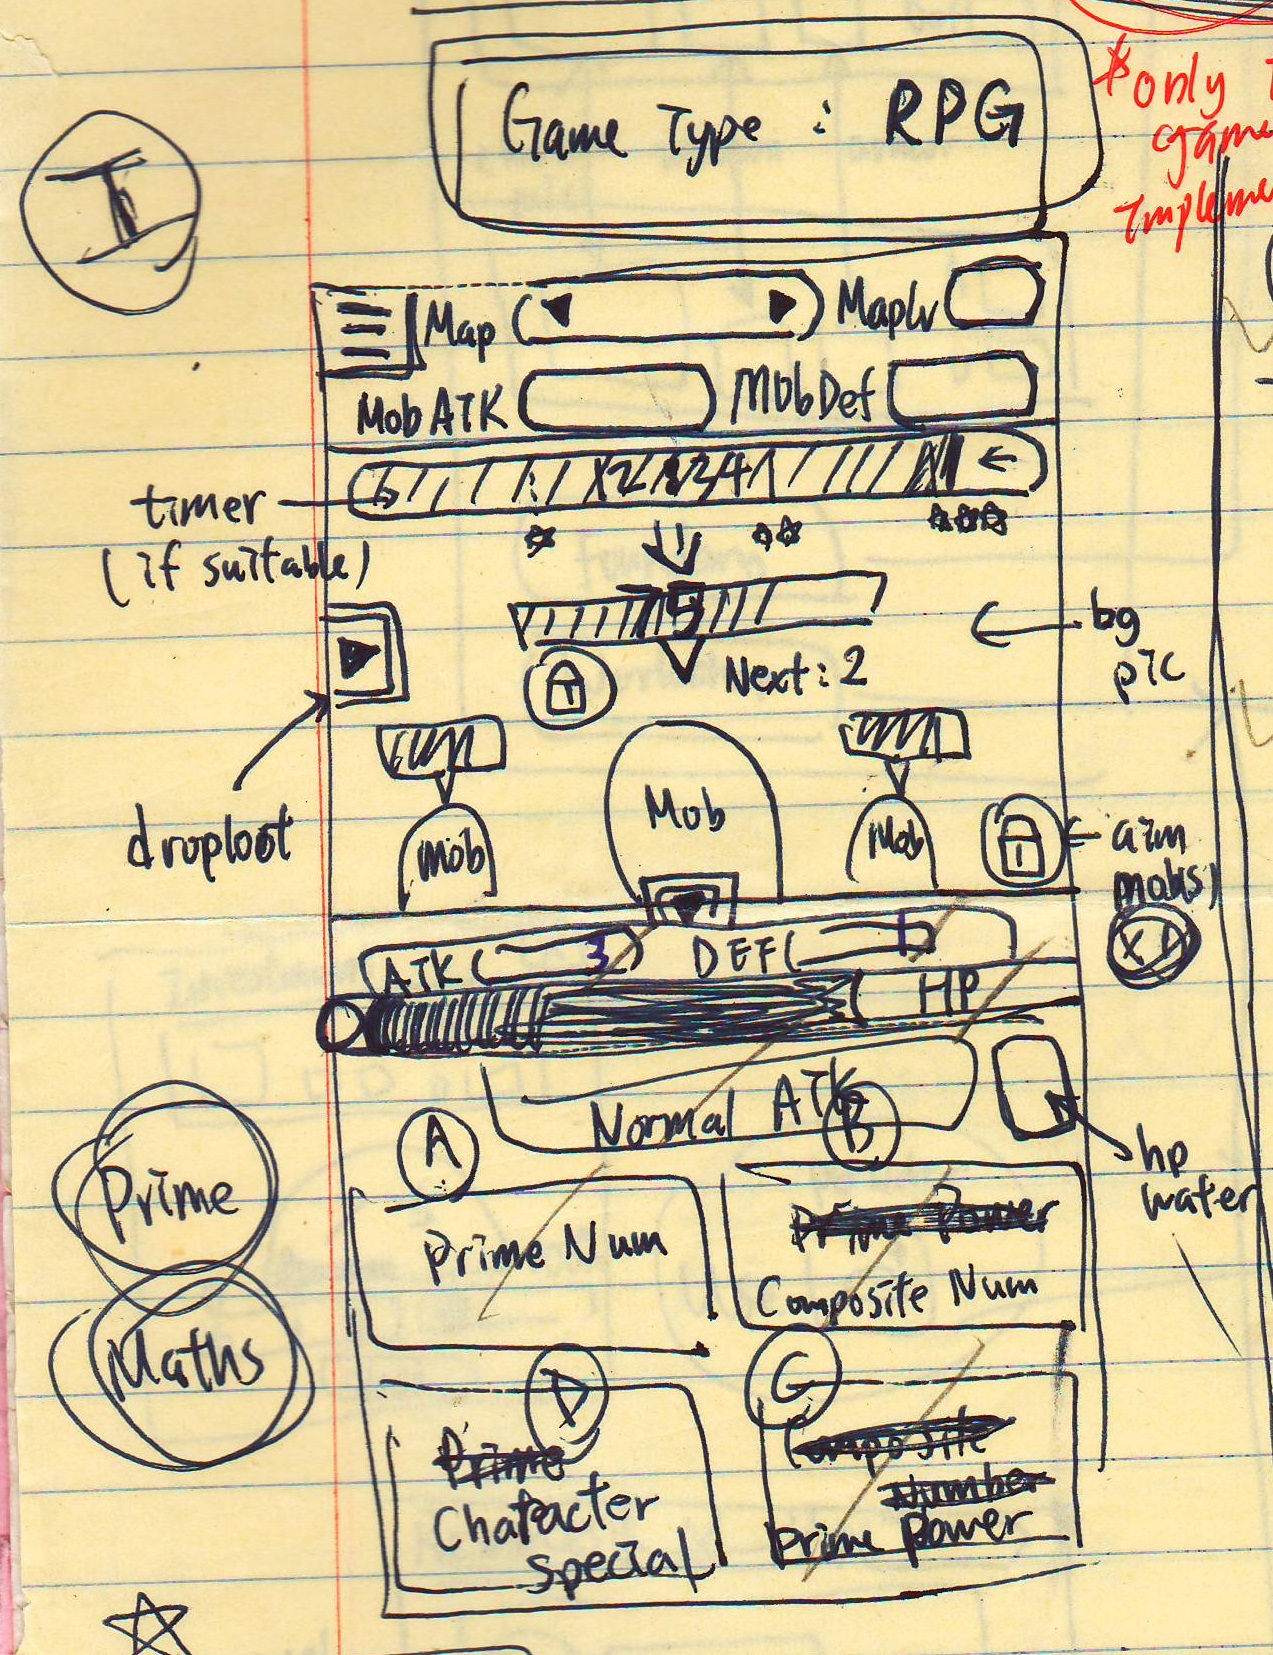 I
Game Type : RPG
*only
game
Impleme
Map
MapLv
Mob ATK
Mob Def
timer
(if suitable)
5
Next : 2
bg
pic
droploot
Mob
Mob
Mob
aim
mobs)
ATK( 3 )
DEF(
HP
Normal ATK
hp
water
A
Prime Num
B
Prime Power
Composite Num
Prime
Maths
D
Prime
Character
Special
C
Composite
Number
Prime Power